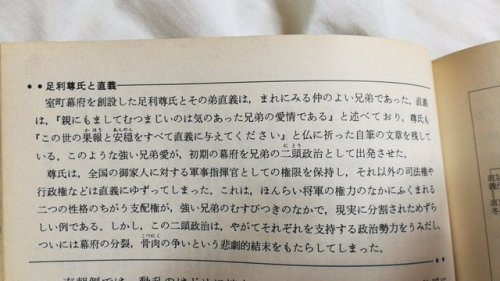 ●●足利尊氏と直義
室町幕府を創設した足利尊氏とその弟直義は，まれにみる仲のよい兄弟であった。直義
は，『親にもましてむつまじいのは気のあった兄弟の愛情である』と述べており，尊氏も
『この世の果報と安穏をすべて直義に与えてください』と仏に祈った自筆の文章を残して
いる。このような強い兄弟愛が，初期の幕府を兄弟の二頭政治として出発させた。
尊氏は，全国の御家人に対する軍事指揮官としての権限を保持し，それ以外の司法権や
行政権などは直義にゆずってしまった。これは，ほんらい将軍の権力のなかにふくまれる
二つの性格のちがう支配権が，強い兄弟のむすびつきのなかで，現実に分割されためずら
しい例である。しかし，この二頭政治は，やがてそれぞれを支持する政治勢力をうみだし，
ついには幕府の分裂，骨肉の争いという悲劇的結末をもたらしてしまった。